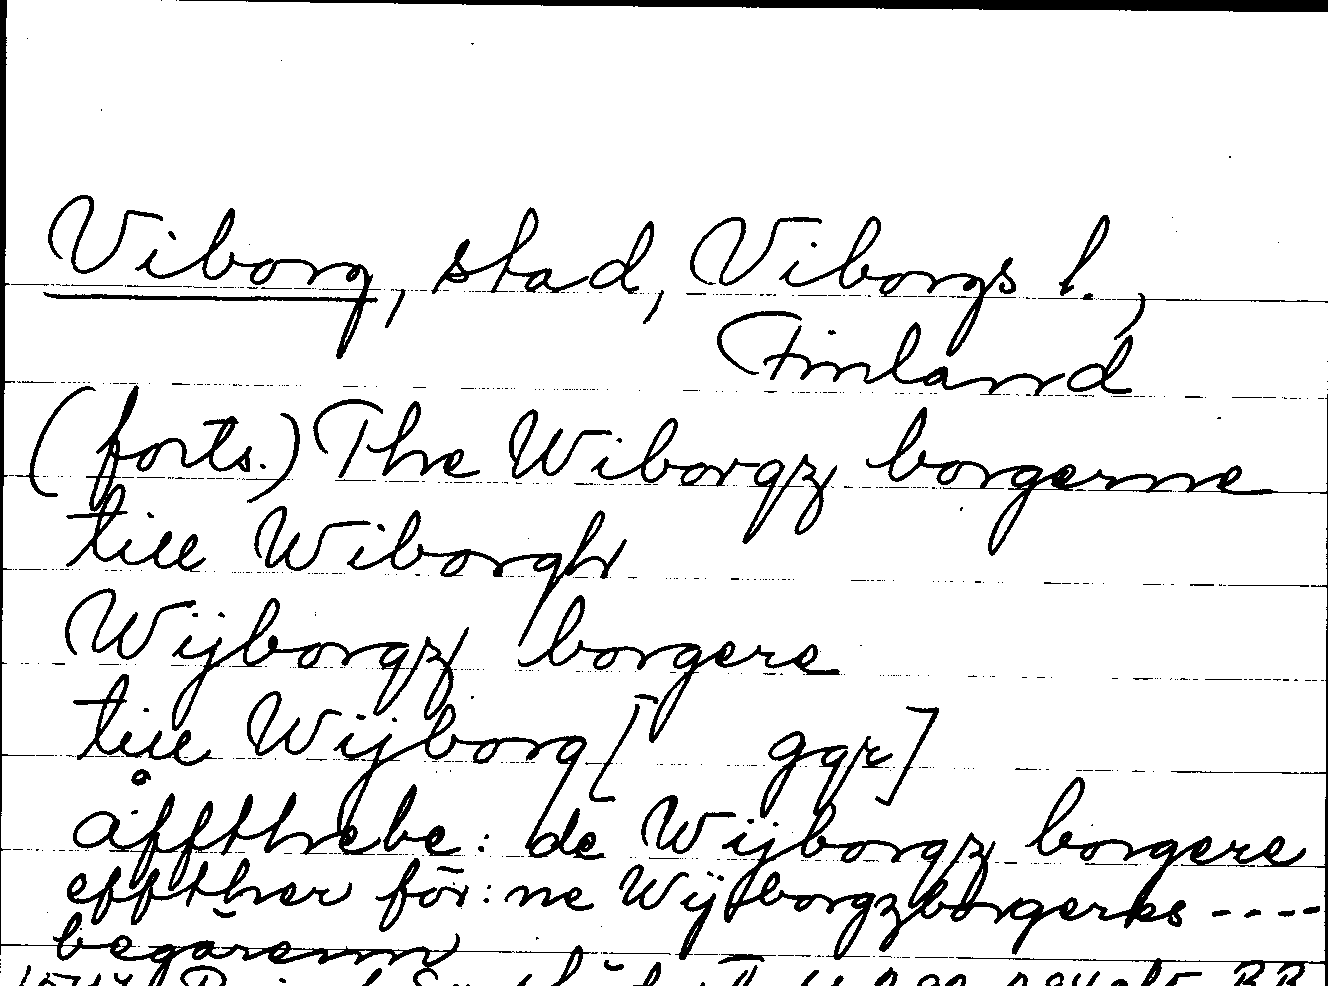 Viborg, stad, Viborgs l.,
Finland
(forts.) The Wiborgz borgerne
till Wiborgh
Wijborgz borgere
till Wijborg [ ggr]
åffthebe: de Wijborgz borgere
effther för:ne Wijborgzborgeres ----
begärenn